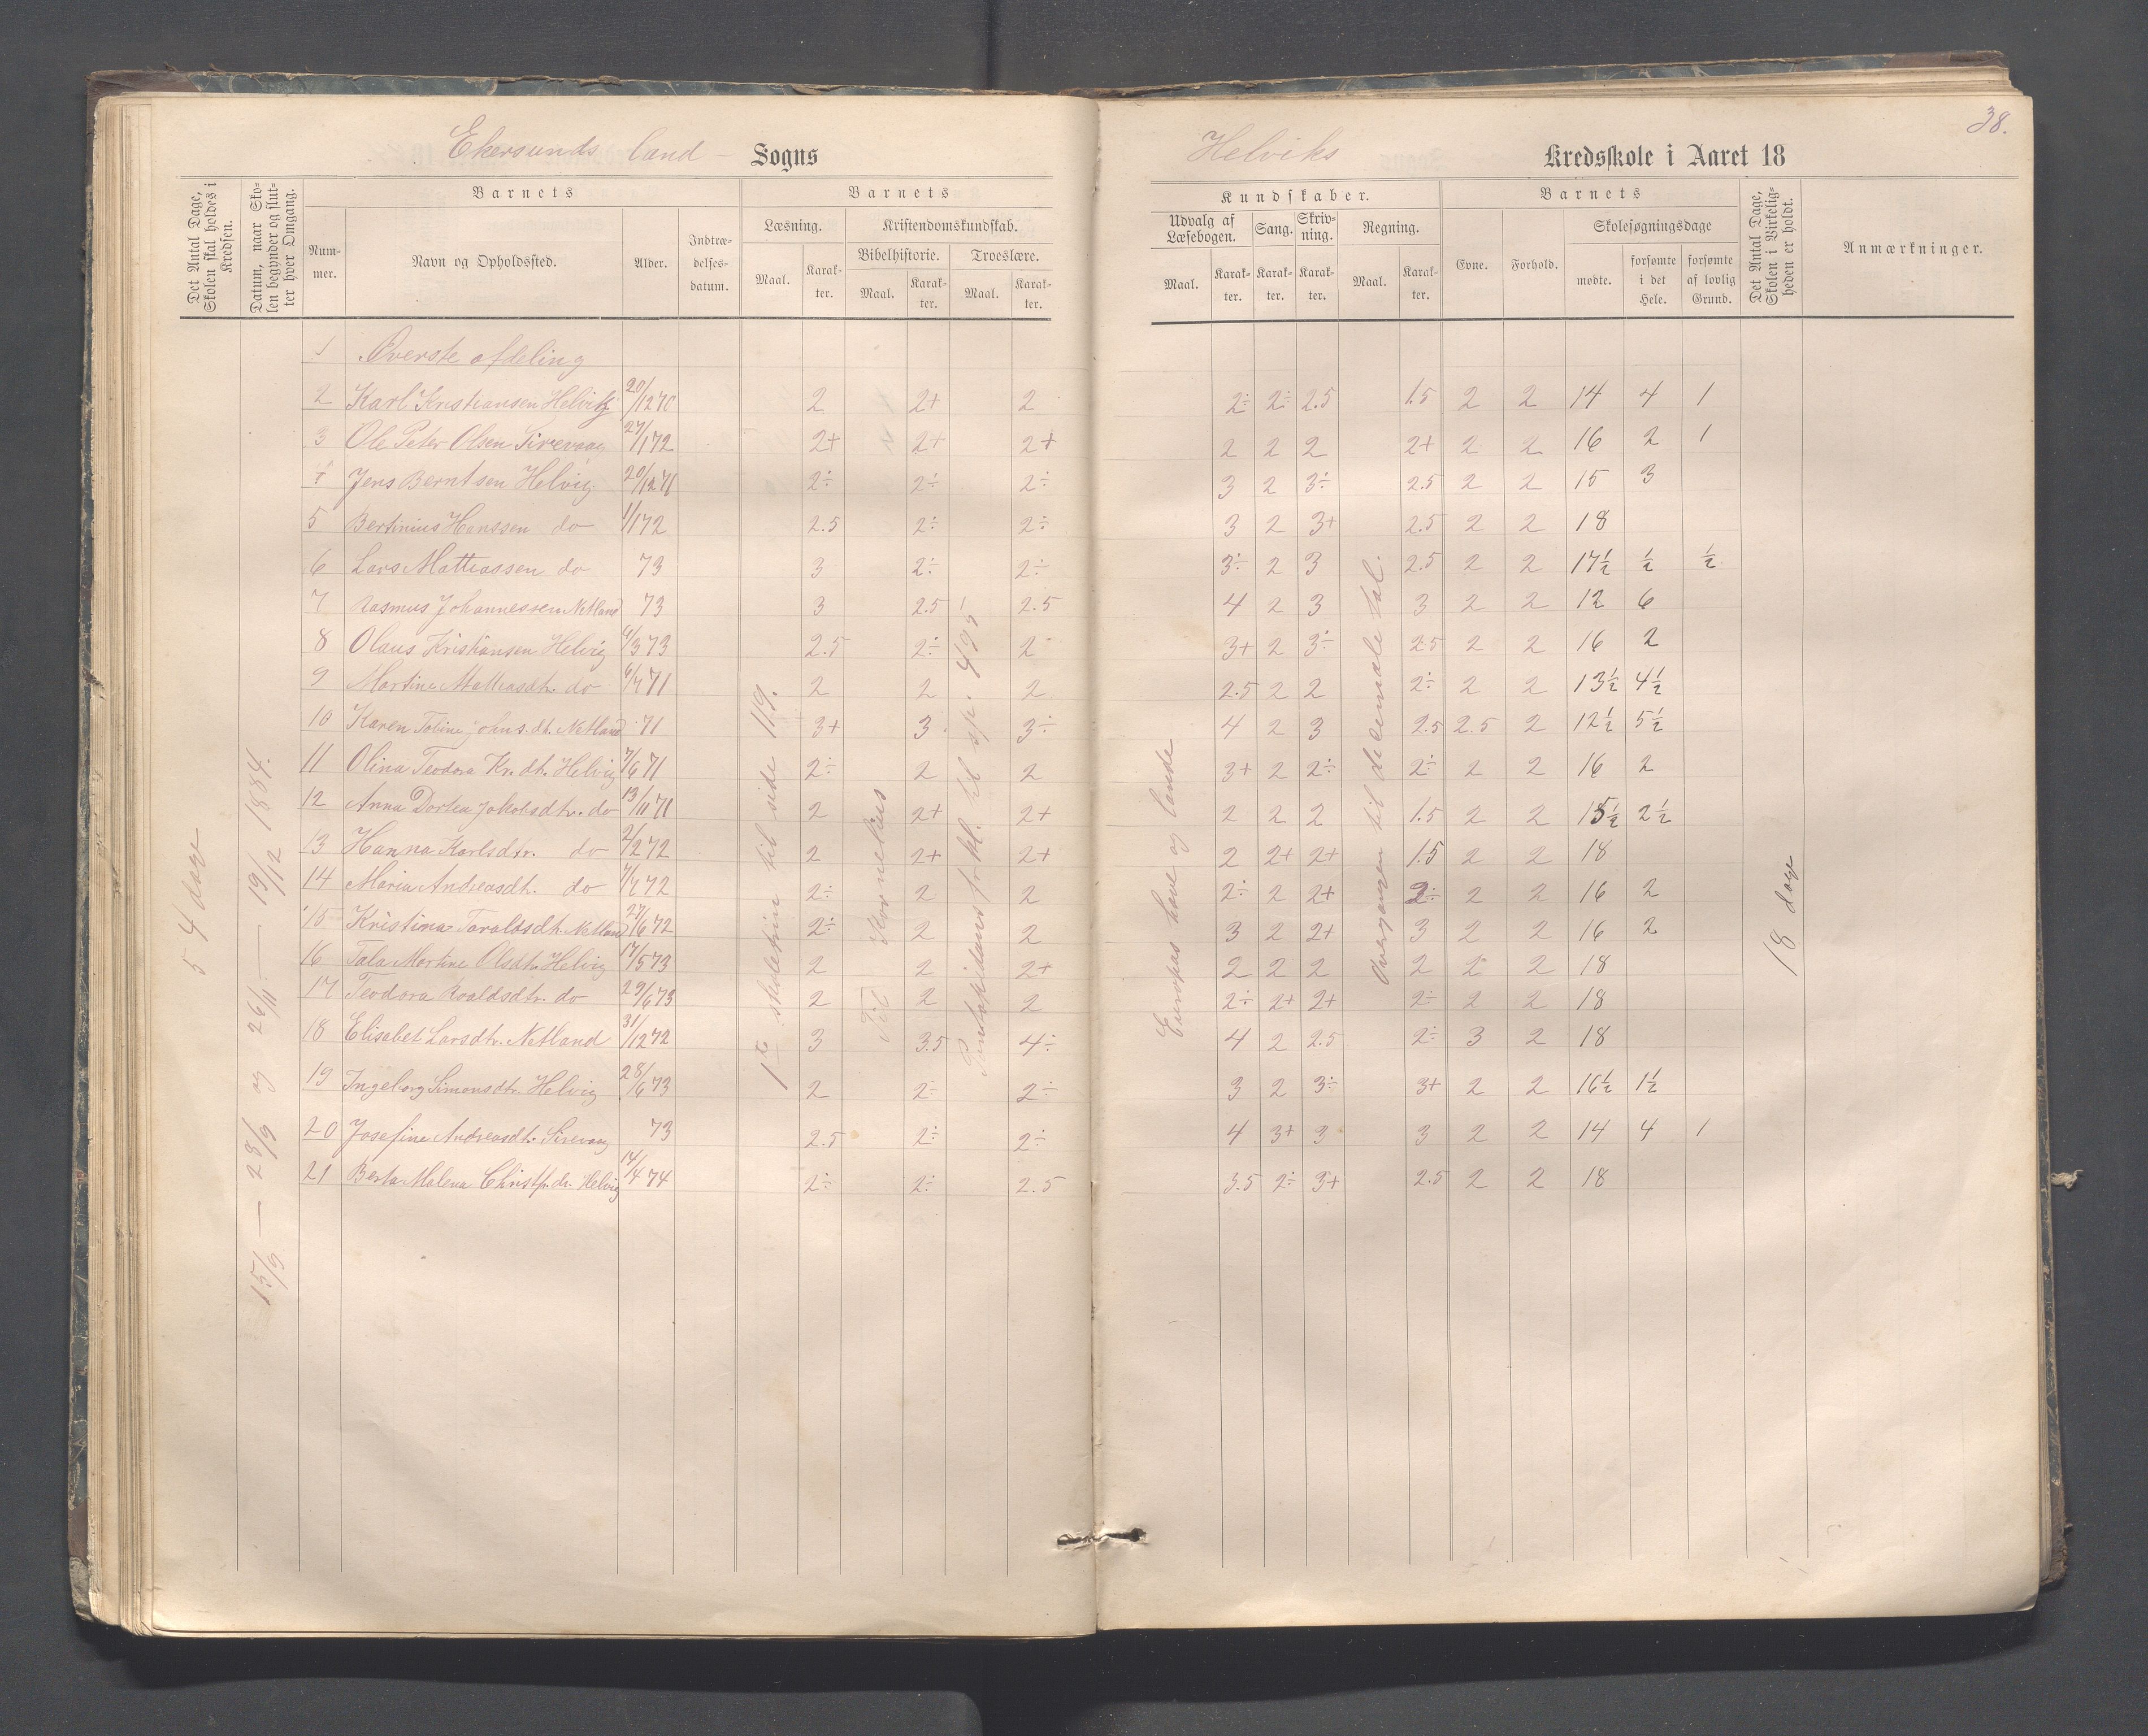 Ekersunds land – Sogns
Det Antal Dage, Skolen skal holdes i Kredsen.
Datum, naar Skolen begynder og slutter hver Omgang.
Barnets
Nummer.
Navn og Opholdssted.
Alder.
Indtrædelsesdatum.
Barnets
Læsning.
Maal.
Karakter.
Kristendomskundskab.
Bibelhistorie.
Maal.
Karakter.
Troeslære.
Maal.
Karakter.
54 dage
15/9 — 23/9 og 26/11 — 19/12 1884.
1 Øverste afdeling
2 Karl Kristiansen Helvig 20/12 70 2 2+ 2
3 Ole Peter Olsen Sirevaag 27/1 72 2+ 2+ 2+
4 Jens Berntsen Helvig 20/12 71 2÷ 2÷ 2÷
5 Bertinius Hanssen do 1/1 72 2.5 2÷ 2÷
6 Lars Mattiassen do 73 3 2÷ 2÷
7 Rasmus Johannessen Netland 73 3 2.5 2.5
8 Olaus Kristiansen Helvig 6/3 73 2.5 2÷ 2
9 Martine Mattiasdtr. do 6/7 71 2 2 2
10 Karen Toline Johns.dtr. Netland 71 3+ 3 3÷
11 Olina Teodora Kr. dtr. Helvig 7/6 71 2÷ 2 2
12 Anna Dortea Jakobsdtr. do 13/11 71 2 2+ 2+
13 Hanna Karlsdtr. do 2/2 72 2 2+ 2+
14 Maria Andreasdtr. do 7/7 72 2÷ 2 2
15 Kristina Taraldsdtr. Netland 27/6 72 2÷ 2 2
16 Tala Martine Olsdtr Helvig 17/5 73 2 2 2+
17 Teodora Roaldsdtr. do 29/6 73 2 2 2
18 Elisabet Larsdtr. Netland 31/12 72 3 3.5 4÷
19 Ingeborg Simonsdtr. Helvig 28/6 73 2 2÷ 2÷
20 Josefine Andreasdtr. Sirevaag 73 2.5 2÷ 2÷
21 Berta Malena Christf.dr. Helvig 14/4 74 2÷ 2÷ 2.5
1te skoletrin til side 119.
Til Kornelius
til sp. 495
38.
Helviks Kredsskole i Aaret 18
Kundskaber.
Udvalg af Læsebogen.
Maal.
Karakter.
Sang.
Karakter.
Skrivning.
Karakter.
Regning.
Maal.
Karakter.
Barnets
Evne.
Forhold.
Skolesøgningsdage
mødte.
forsømte i det Hele.
forsømte af lovlig Grund.
Det Antal Dage, Skolen i Virkeligheden er holdt.
Anmærkninger.
2÷ 2÷ 2.5 1.5 2 2 14 4 1
2 2 2 2+ 2 2 16 2 1
3 2 3÷ 2.5 2 2 15 3
3 2 3+ 2.5 2 2 18
3÷ 2 3 2.5 2 2 17½ ½ ½
4 2 3 3 2 2 12 6
3+ 2 3÷ 2.5 2 2 16 2
2.5 2 2 2÷ 2 2 13½ 4½
4 2 3 2.5 2.5 2 12½ 5½
3+ 2 2÷ 2÷ 2 2 16 2
2 2 2 1.5 2 2 15½ 2½
2 2+ 2+ 1.5 2 2 18
2÷ 2 2+ 2÷ 2 2 16 2
3 2 2+ 3 2 2 16 2
2 2 2 2 2 2 18
2÷ 2+ 2+ 2÷ 2 2 18
4 2 2.5 2÷ 3 2 18
3 2 3÷ 3+ 2 2 16½ 1½
4 3+ 3 3 2 2 14 4 1
3.5 2÷ 3+ 2.5 2 2 18
Europas have og lande
Overgangen til decimale tal.
18 dage